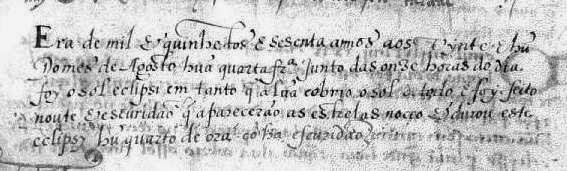 Era de mil e quinhẽtos e sesenta annos aos vynte e hũ
do mes de Agosto huã quarta frª junto das onze horas do dia
foy o sol eclipsi em tanto q̃ a lũa cobrio o sol de todo e foy feito
noute e escuridaõ q̃ aparecerão as estrelas no ceo e durou este
eclipsy hũ quarto de ora cõ a escuridão